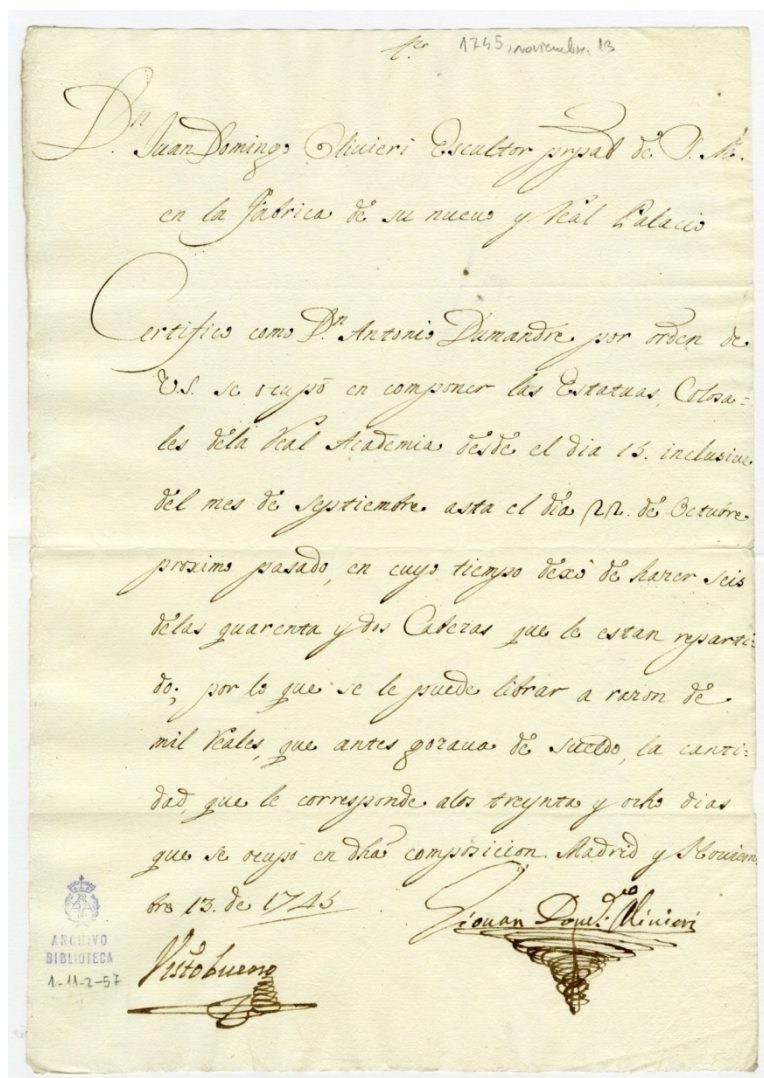 1745, noviembre, 13
Dn. Juan Domingo Olivieri Escultor prṕal de S. M.
en la Fabrica de su nuevo y Real Palacio
Certifico como Dn. Antonio Dumandre por orden de
V.S. se ocupó en componer las Estatuas, Colosa=
les dela Real Academia desde el dia 15. inclusive
del mes de septiembre asta el dia 22. de Octubre
proximo pasado, en cuyo tiempo dexó de hazer seis
delas quarenta y dos Cabezas que le estan reparti=
do; por lo que se le puede librar a razon de
mil Reales, que antes gozaua de sueldo, la canti=
dad, que le corresponde alos treynta y ocho dias
que se ocupó en dha composicion. Madrid y Noviem
bre 13. de 1745
Giouan Domco. Olivieri
Visto bueno
ARCHIVO
BIBLIOTECA
1-11-2-57